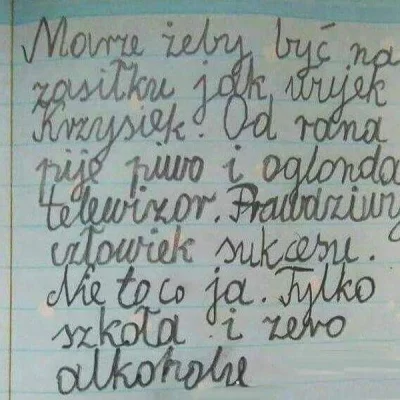 Marze żeby być na
zasiłku jak wujek
Krzysiek. Od rana
pije piwo i oglonda
telewizor. Prawdziwy
człowiek sukcesu.
Nie to co ja. Tylko
szkoła i zero
alkoholu